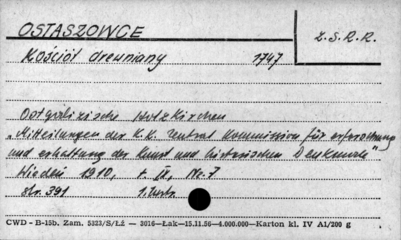 OSTASZOWCE
Z.S.R.R.
Kościół drewniany 1747
Ostgalizische Holzkirchen
„Mitteilungen der K.K. Zentral Kommission für erforschung
und erhaltung der Kunst und historischen Denkmale"
Wiedeń 1910, t. IX, Nr. 7
str. 391 1. ilustr.
CWD - B-15b. Zam. 5323/S/Łż — 3016—Łak—15.11.56—4.000.000—Karton kl. IV A1/200 g